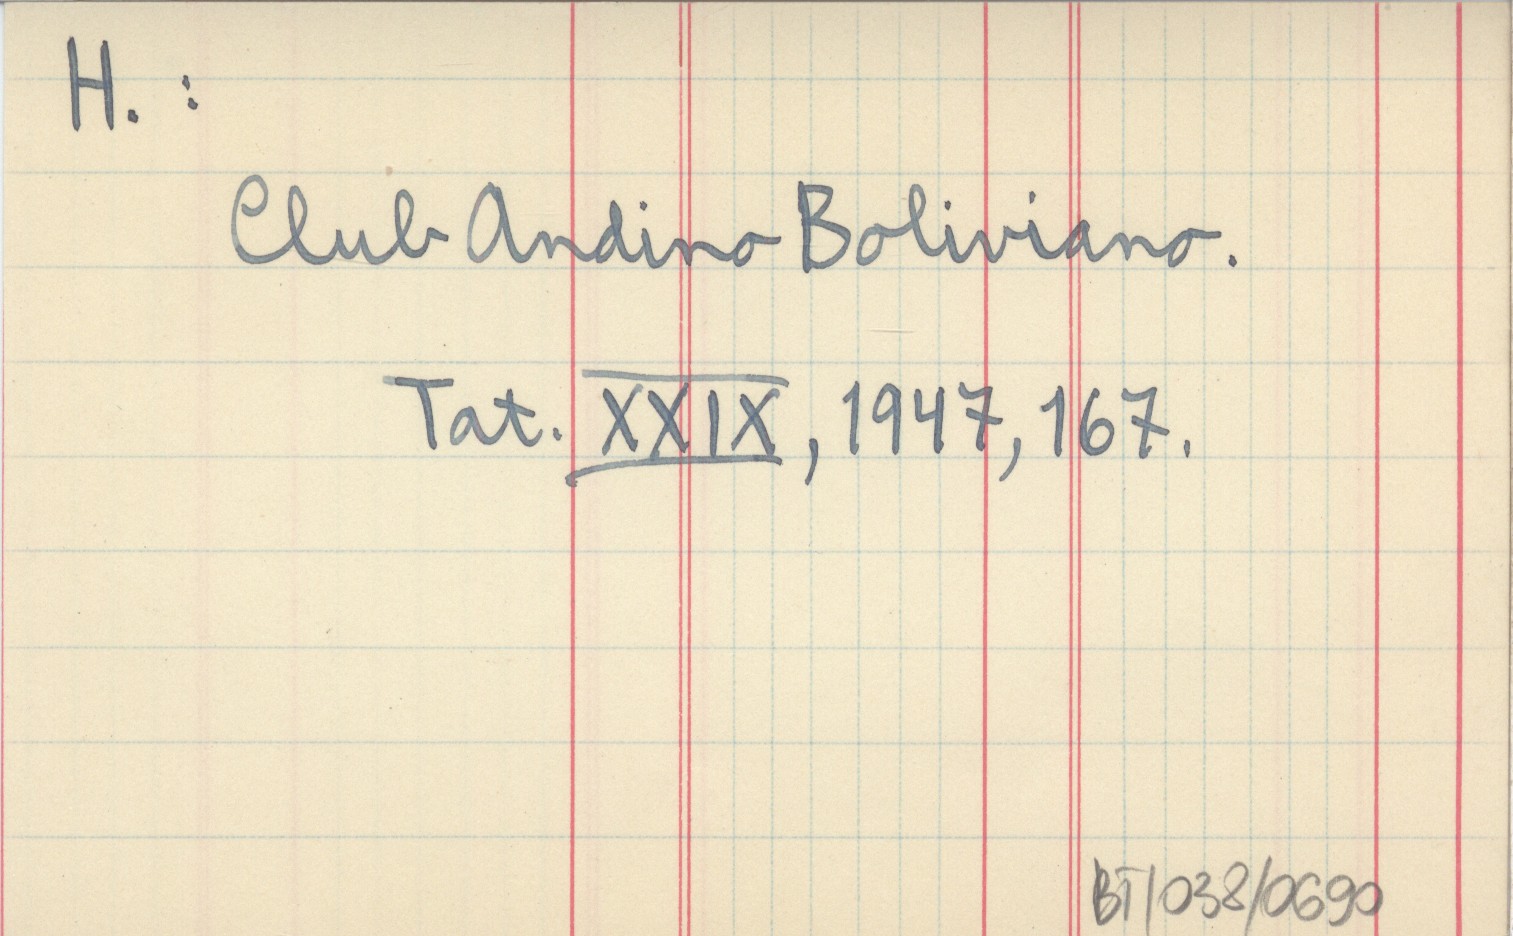 H. :
Club Andino Boliviano.
Tat. XXIX, 1947, 167.
BT/038/0690